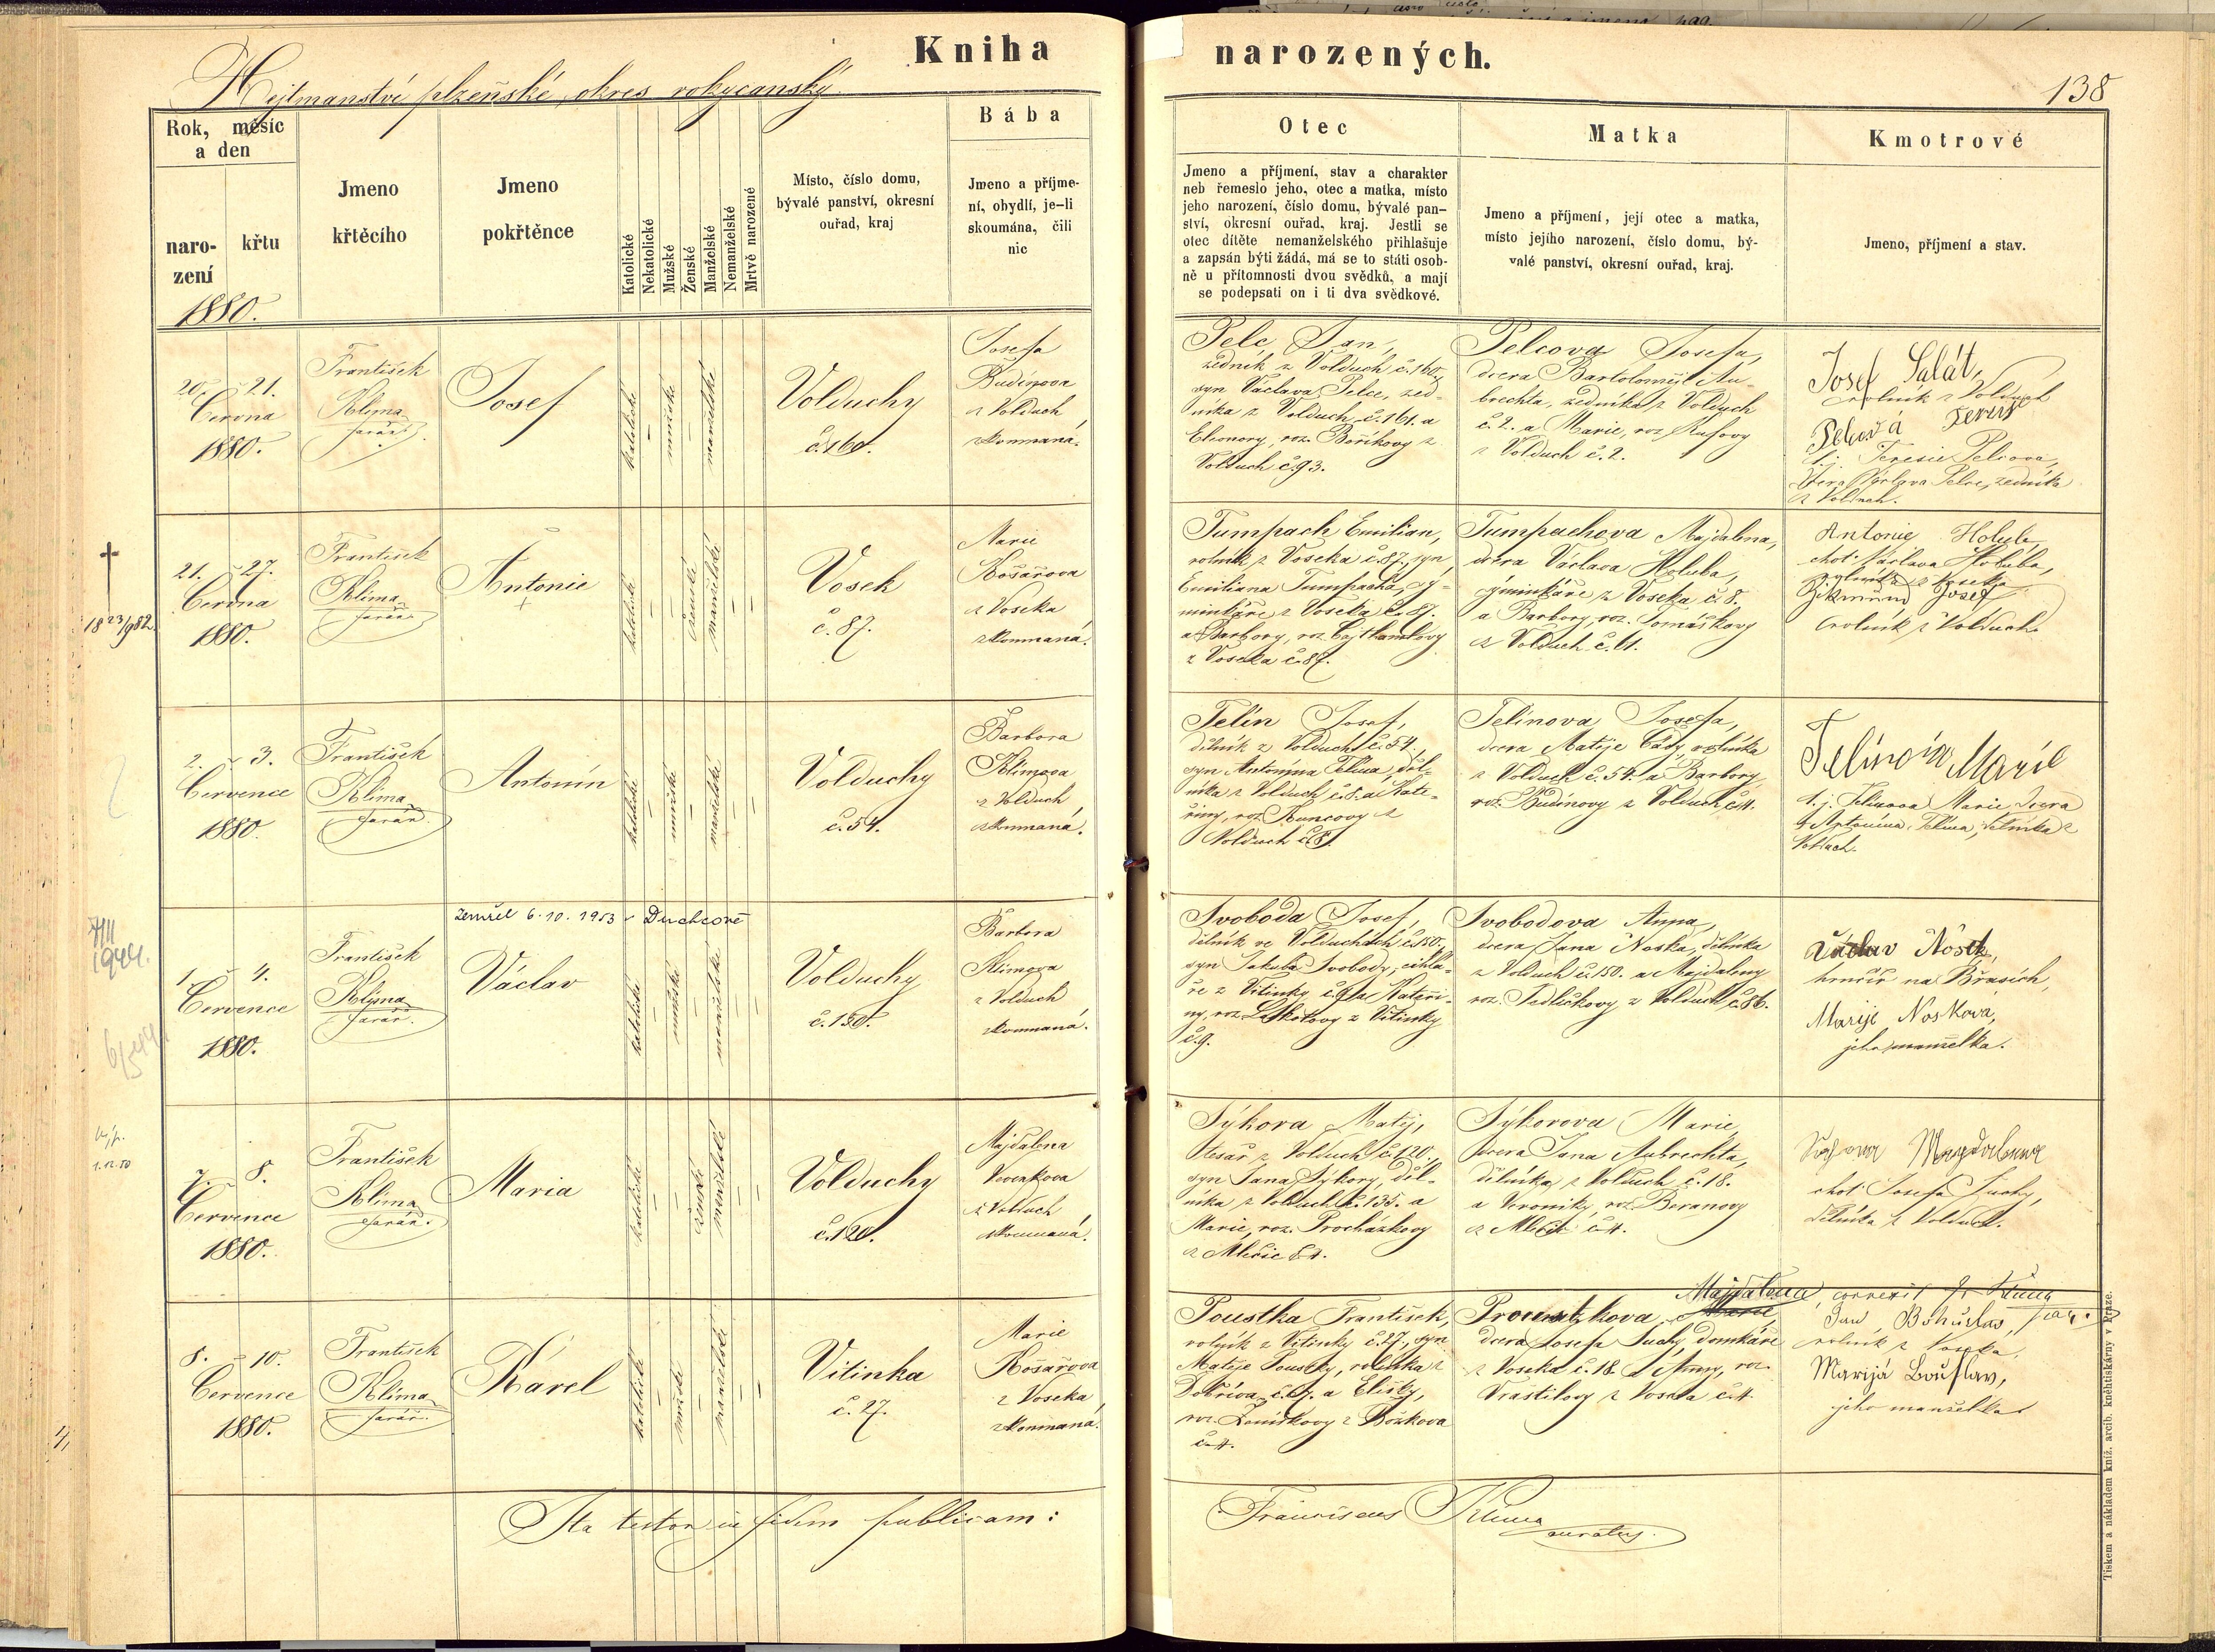 Kniha narozených.
Hejtmanství plzeňské, okres rokycanský
138
Rok, měsíc
a den
naro-
zení
křtu
1880.
Jmeno
křtěcího
Jmeno
pokřtěnce
Katolické
Nekatolické
Mužské
Ženské
Manželské
Nemanželské
Mrtvě narozené
Místo, číslo domu,
bývalé panství, okresní
ouřad, kraj
Bába
Jmeno a příjme-
ní, obydlí, je-li
skoumána, čili
nic
Otec
Jmeno a příjmení, stav a charakter
neb řemeslo jeho, otec a matka, místo
jeho narození, číslo domu, bývalé pan-
ství, okresní ouřad, kraj. Jestli se
otec dítěte nemanželského přihlašuje
a zapsán býti žádá, má se to státi osob-
ně u přítomnosti dvou svědků, a mají
se podepsati on i ti dva svědkové.
Matka
Jmeno a příjmení, její otec a matka,
místo jejího narození, číslo domu, bý-
valé panství, okresní ouřad, kraj.
Kmotrové
Jmeno, příjmení a stav.
20. 21.
Června
1880.
František
Klima
farář.
Josef
katolické
mužské
manželské
Volduchy
č. 160.
Josefa
Budínova
z Volduch
zkoumaná.
Pelc Jan,
zedník z Volduch č. 160.,
syn Václava Pelce, zed-
níka z Volduch č. 161. a
Eleonory, roz.
Volduch č. 93.
Pelcova Josefa,
dcera Bartoloměje Au-
brechta, zedníka z Volduch
č. 2. a Marie, roz.
z Volduch č. 2.
Josef Salát,
rolník z Volduch
Pelcová
t.j. Teresie Pelcova,
dcera Václava Pelce, zedníka
z Volduch.
21. 27.
Června
1880.
František
Klima
farář.
Antonie
katolické
ženské
manželské
Vosek
č. 87.
Marie
Košařova
z Voseka
zkoumaná.
Tumpach Emilian,
rolník z Voseka č. 87., syn
Emiliana Tumpacha, vý-
minkáře z Voseka č. 87.
a Barbory, roz.
z Voseka č. 87.
Tumpachova Majdalena,
dcera Václava Holuba,
výminkáře z Voseka č. 8.
a Barbory, roz. Tomáškovy
z Volduch č. 61.
Antonie Holub,
choť Václava Holuba,
rolníka z Voseka
Zikmund Josef
rolník z Volduch
2. 3.
Července
1880.
František
Klima
farář.
Antonín
katolické
mužské
manželské
Volduchy
č. 54.
Barbora
Klimova
z Volduch
zkoumaná.
Telín Josef,
dělník z Volduch č. 54.,
syn Antonína Telína, děl-
níka z Volduch č. 8. a Kate-
řiny, roz. Kuncovy z
Volduch č. 8.
Telínova Josefa,
dcera Matěje Cády, rolníka
z Volduch č. 54. a Barbory
roz. Budínovy z Volduch č. 4.
Telínova Marie
t.j. Telínova Marie, dcera
Antonína Telína, dělníka z
Volduch.
zemřel 6.10.1953 v Duchcově
1. 4.
Července
1880.
František
Klima
farář.
Václav
katolické
mužské
manželské
Volduchy
č. 150.
Barbora
Klimova
z Volduch
zkoumaná.
Svoboda Josef,
dělník ve Volduchách č. 150.,
syn Jakuba Svobody, cihlá-
ře z Vitinky č. 9. a Kateři-
ny, roz. z Vitinky
č. 9.
Svobodova Anna,
dcera Jana Noska, dělníka
z Volduch č. 150. a Majdaleny
roz. Sedličkovy z Volduch č. 86.
Václav Nosek,
hrnčíř na Břasích,
Marije Noskova,
jeho manželka.
7. 8.
Července
1880.
František
Klima
farář.
Maria
katolické
ženské
manželské
Volduchy
č. 120.
Majdalena
z Volduch
zkoumaná.
Sýkora Matěj,
tesař z Volduch č. 120.,
syn Jana Sýkory, děl-
níka z Volduch č. 135. a
Marie, roz. Procházkovy
z Mlečic č. 4.
Sýkorova Marie,
dcera Jana Aubrechta,
dělníka z Volduch č. 18.
a Veroniky, roz. Beranovy
č. 4.
Magdalena
choť Josefa Suchy,
dělníka z Volduch.
8. 10.
Července
1880.
František
Klima
farář.
Karel
katolické
mužské
manželské
Vitinka
č. 27.
Marie
Košařova
z Voseka
zkoumaná.
Poustka František,
rolník z Vitinky č. 27., syn
Matěje Poustky, rolníka z
a Elišky,
roz. z Bušková
č. 4.
Majdalena correxit Fr. Klima
far.
Poustkova Marie,
dcera Josefa Suchy, domkáře
z Voseka č. 18. a Anny, roz.
Vrastilovy z Voseka č. 4.
Jan Bohuslav,
rolník z Voseka,
Marija Bouslav,
jeho manželka
Ita testor in fidem publicam:
Franciscus Klima
curatus.
Tiskem a nákladem kníž. arcib. kněhtiskárny v Praze.